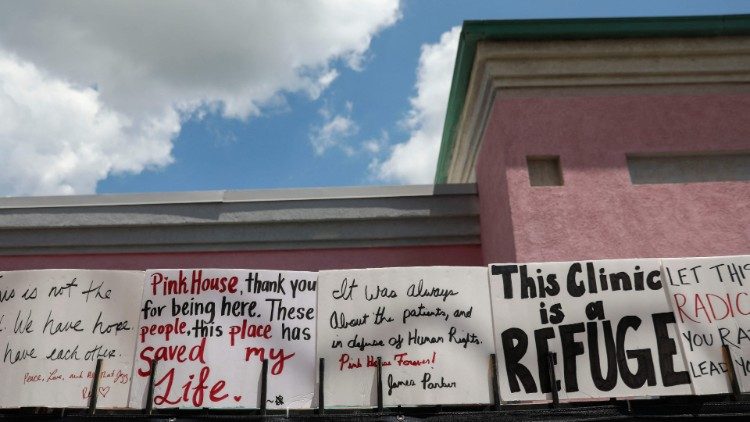 his is not the
. We have hope.
have each other.
Peace, Love, and
Pink House, thank you
for being here. These
people, this place has
saved my
Life.
It Was Always
About the patients, and
in defense of Human Rights.
Pink House Forever!
James Parker
This Clinic
is a
REFUGE
LET THIS
RADIC
YOU RA
LEAD YO